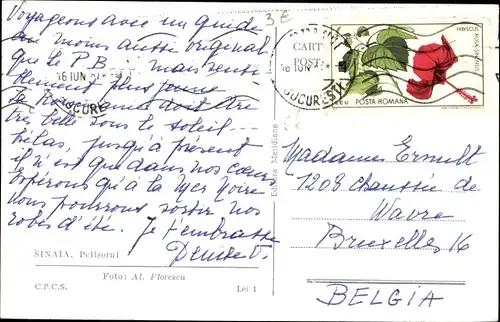 Voyageons avec un guide
au moins aussi original
que le P.B. mais senti-
blement plus jeune.
La Roumanie doit être
très belle sous le soleil -
hélas, jusqu'à présent
il n'est que dans nos cœurs
Espérons qu'à la Mer Noire
nous pourrons sortir nos
robes d'été. Je t'embrasse
Denise V.
SINAIA, Pelișorul
Foto: Al. Florescu
C.P.C.S. Lei 1
Editura Meridiane
3 €
16 IUN
BUCUREȘTI
CART
POȘT
16 IUN
BUCUREȘTI
HIBISCUS ROSA SINENSIS
LEU POSTA ROMANA
Madame Ermult
1209 Chaussée de
Wavre
Bruxelles 16
BELGIA